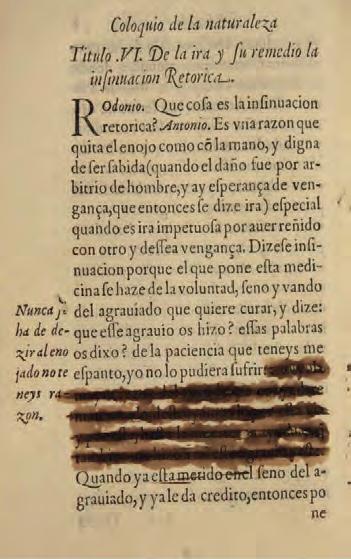 Coloquio de la naturaleza
Titulo .VI. De la ira y ſu remedio la
inſinuacion Retorica.
ROdonio. Que coſa es la inſinuacion
retorica? Antonio. Es vna razon que
quita el enojo como cõ la mano, y digna
de ſer ſabida (quando el daño fue por ar-
bitrio de hombre, y ay eſperança de ven-
gança, que entonces ſe dize ira) eſpecial
quando es ira impetuoſa por auer reñido
con otro y deſſea vengança. Dizeſe inſi-
nuacion porque el que pone eſta medi-
cina ſe haze de la voluntad, ſeno y vando
del agrauiado que quiere curar, y dize:
que eſſe agrauio os hizo? eſſas palabras
os dixo? de la paciencia que teneys me
eſpanto, yo no lo pudiera ſufrir
Quando ya eſta metido en el ſeno del a-
grauiado, y ya le da credito, entonces po
ne
Nunca ſe
ha de de-
zir al eno
jado no te
neys ra-
zon.